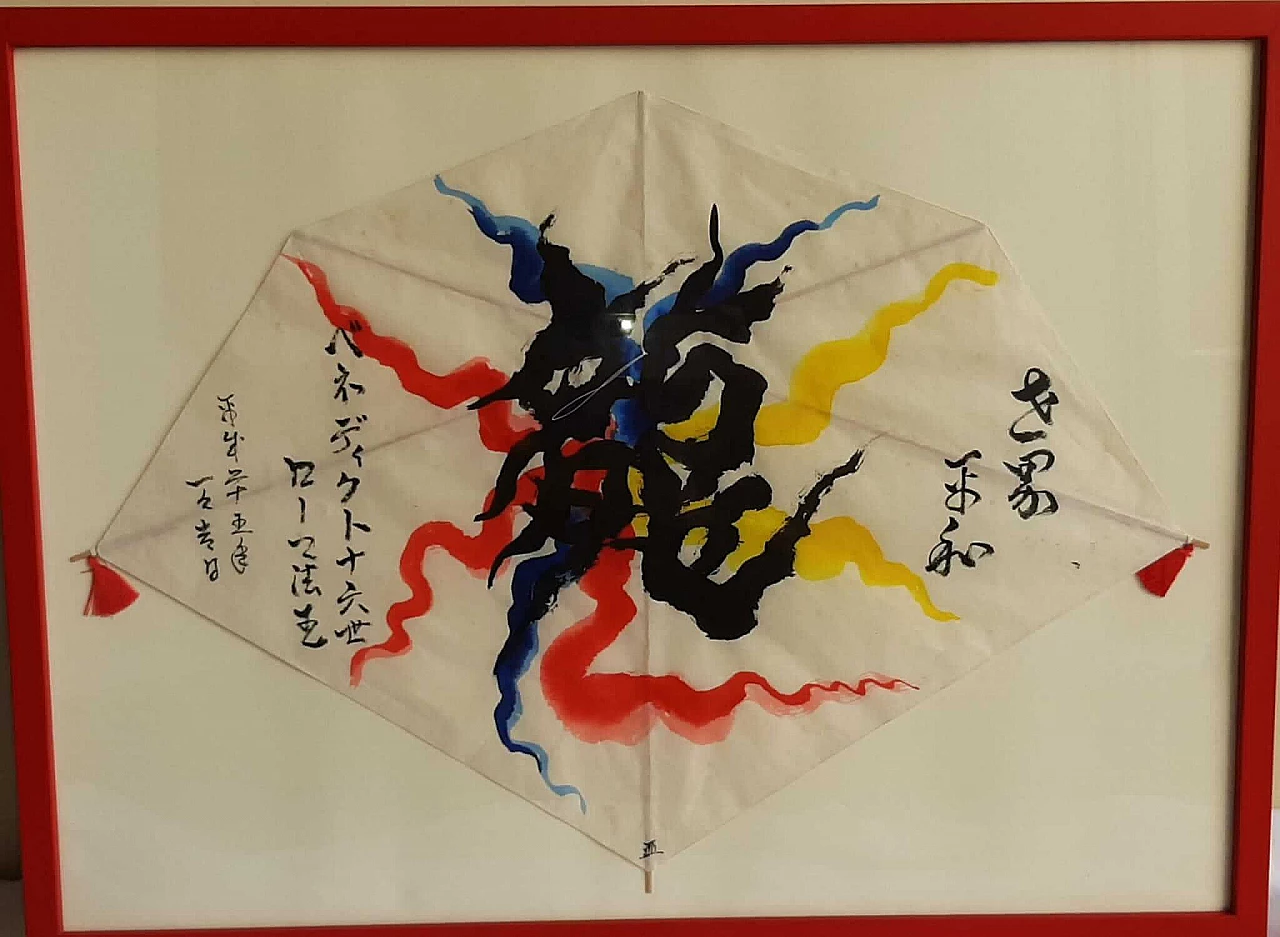 世界
平和
龍
ベネディクト十六世
ローマ法王
平成二十五年
一月吉日